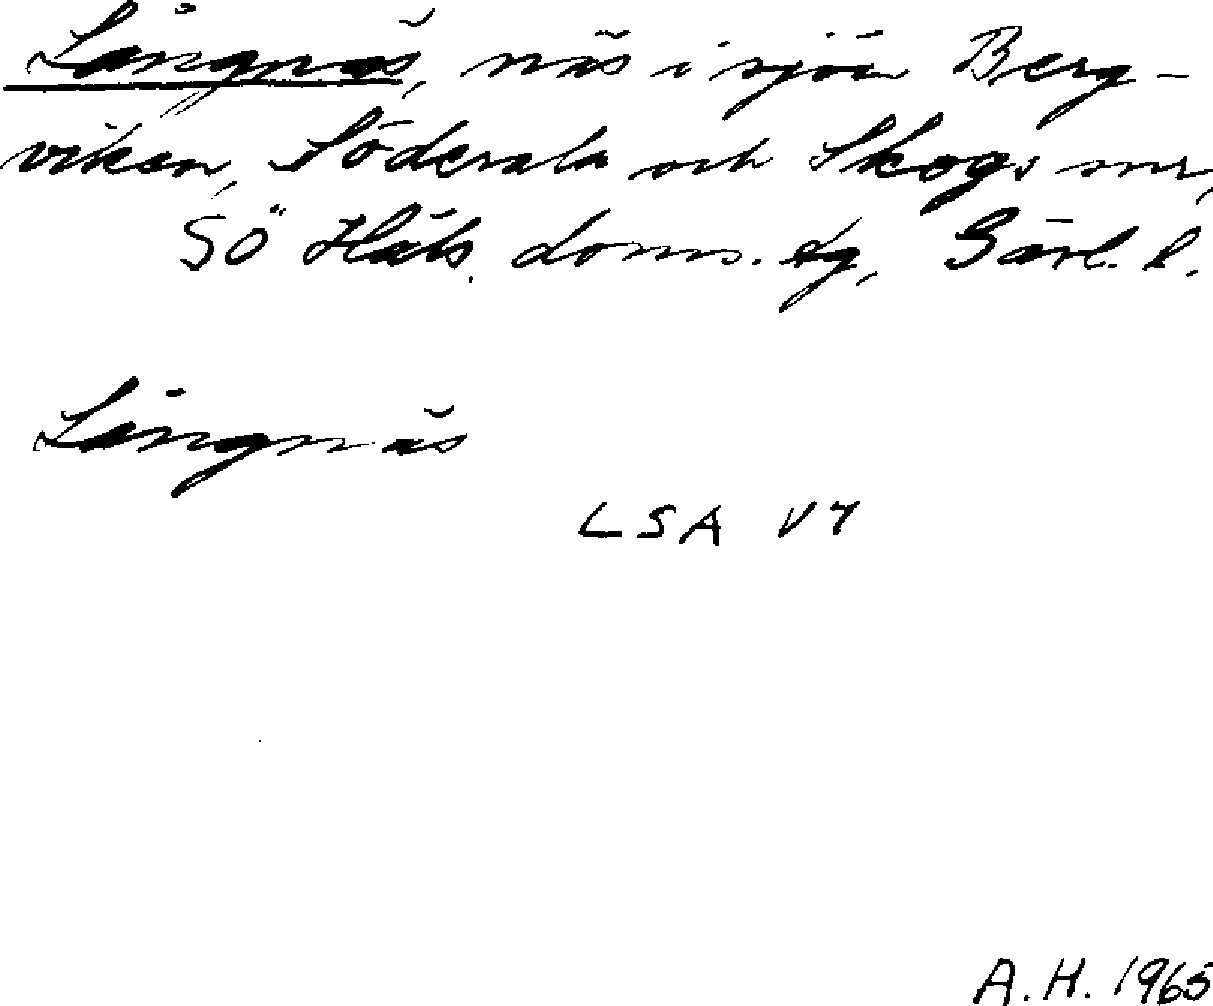 Långnäs, näs i sjön Berg-
viken, Söderala och Skogs snr,
SÖ Häls. doms. sg, Gävl. l.
Långnäs
LSA V7
A.H. 1965